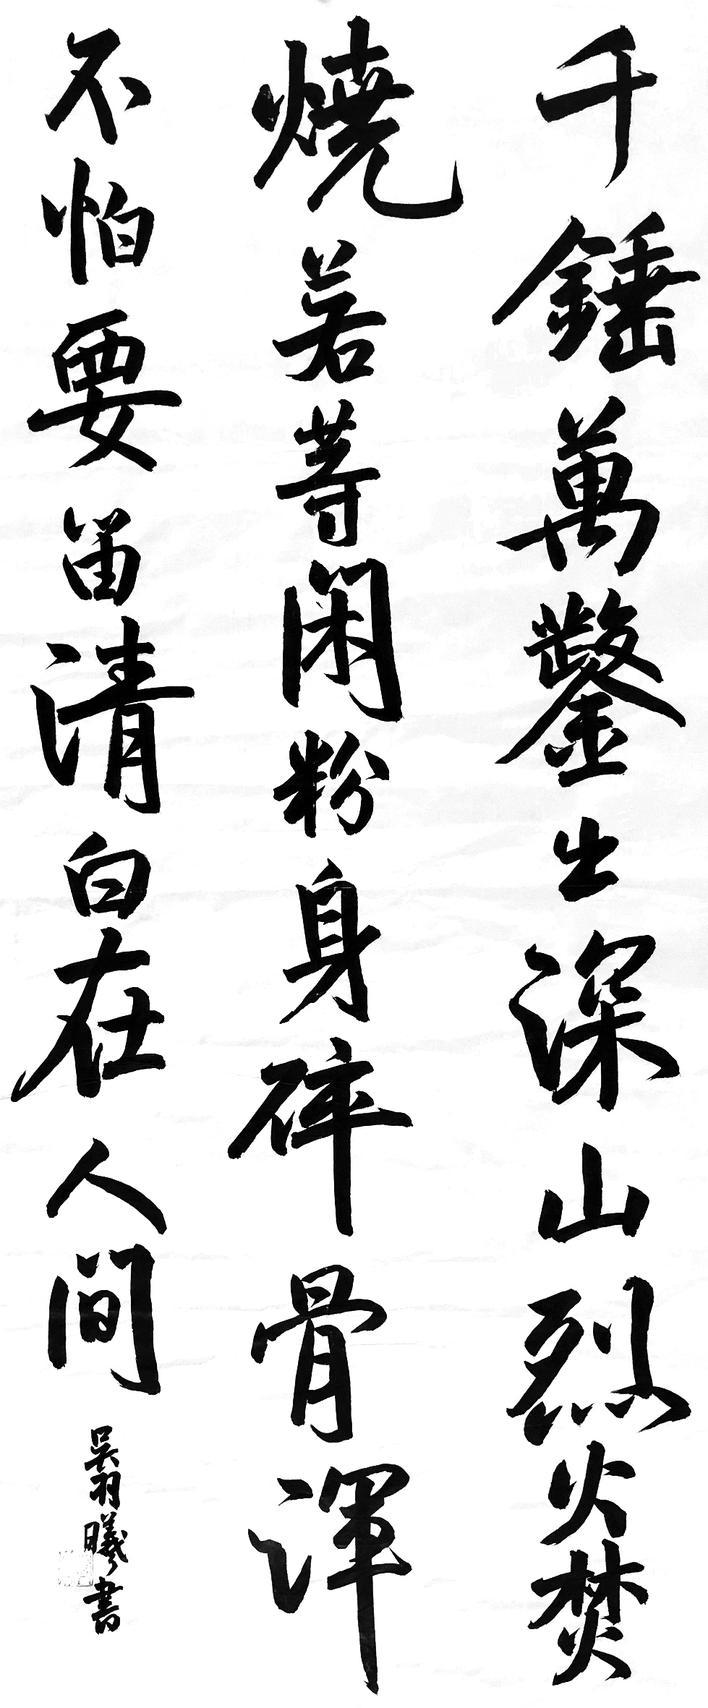 千錘萬鑿出深山烈火焚
燒若等闲粉身碎骨渾
不怕要留清白在人间
吳羽曦書